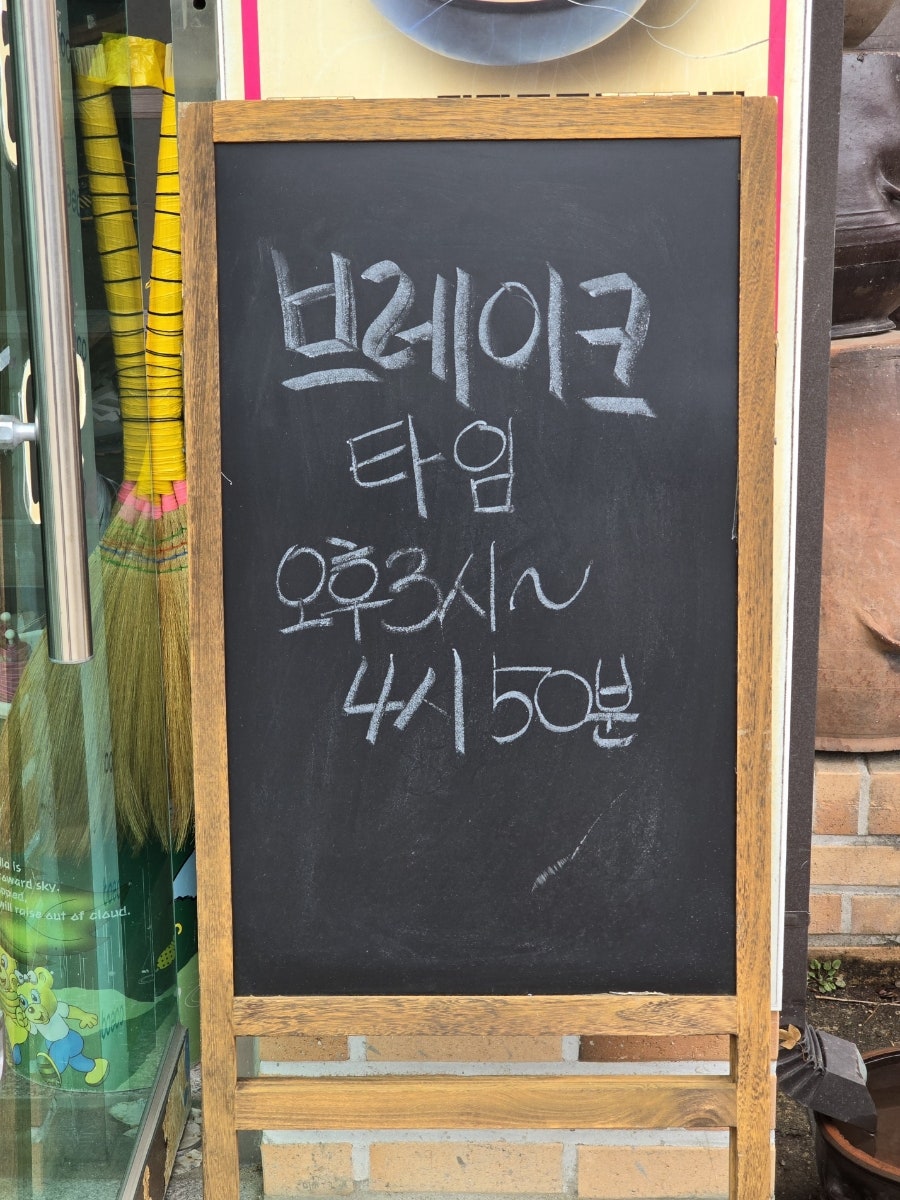 브레이크
타임
오후3시~
4시 50분
toward sky.
will raise out of cloud.